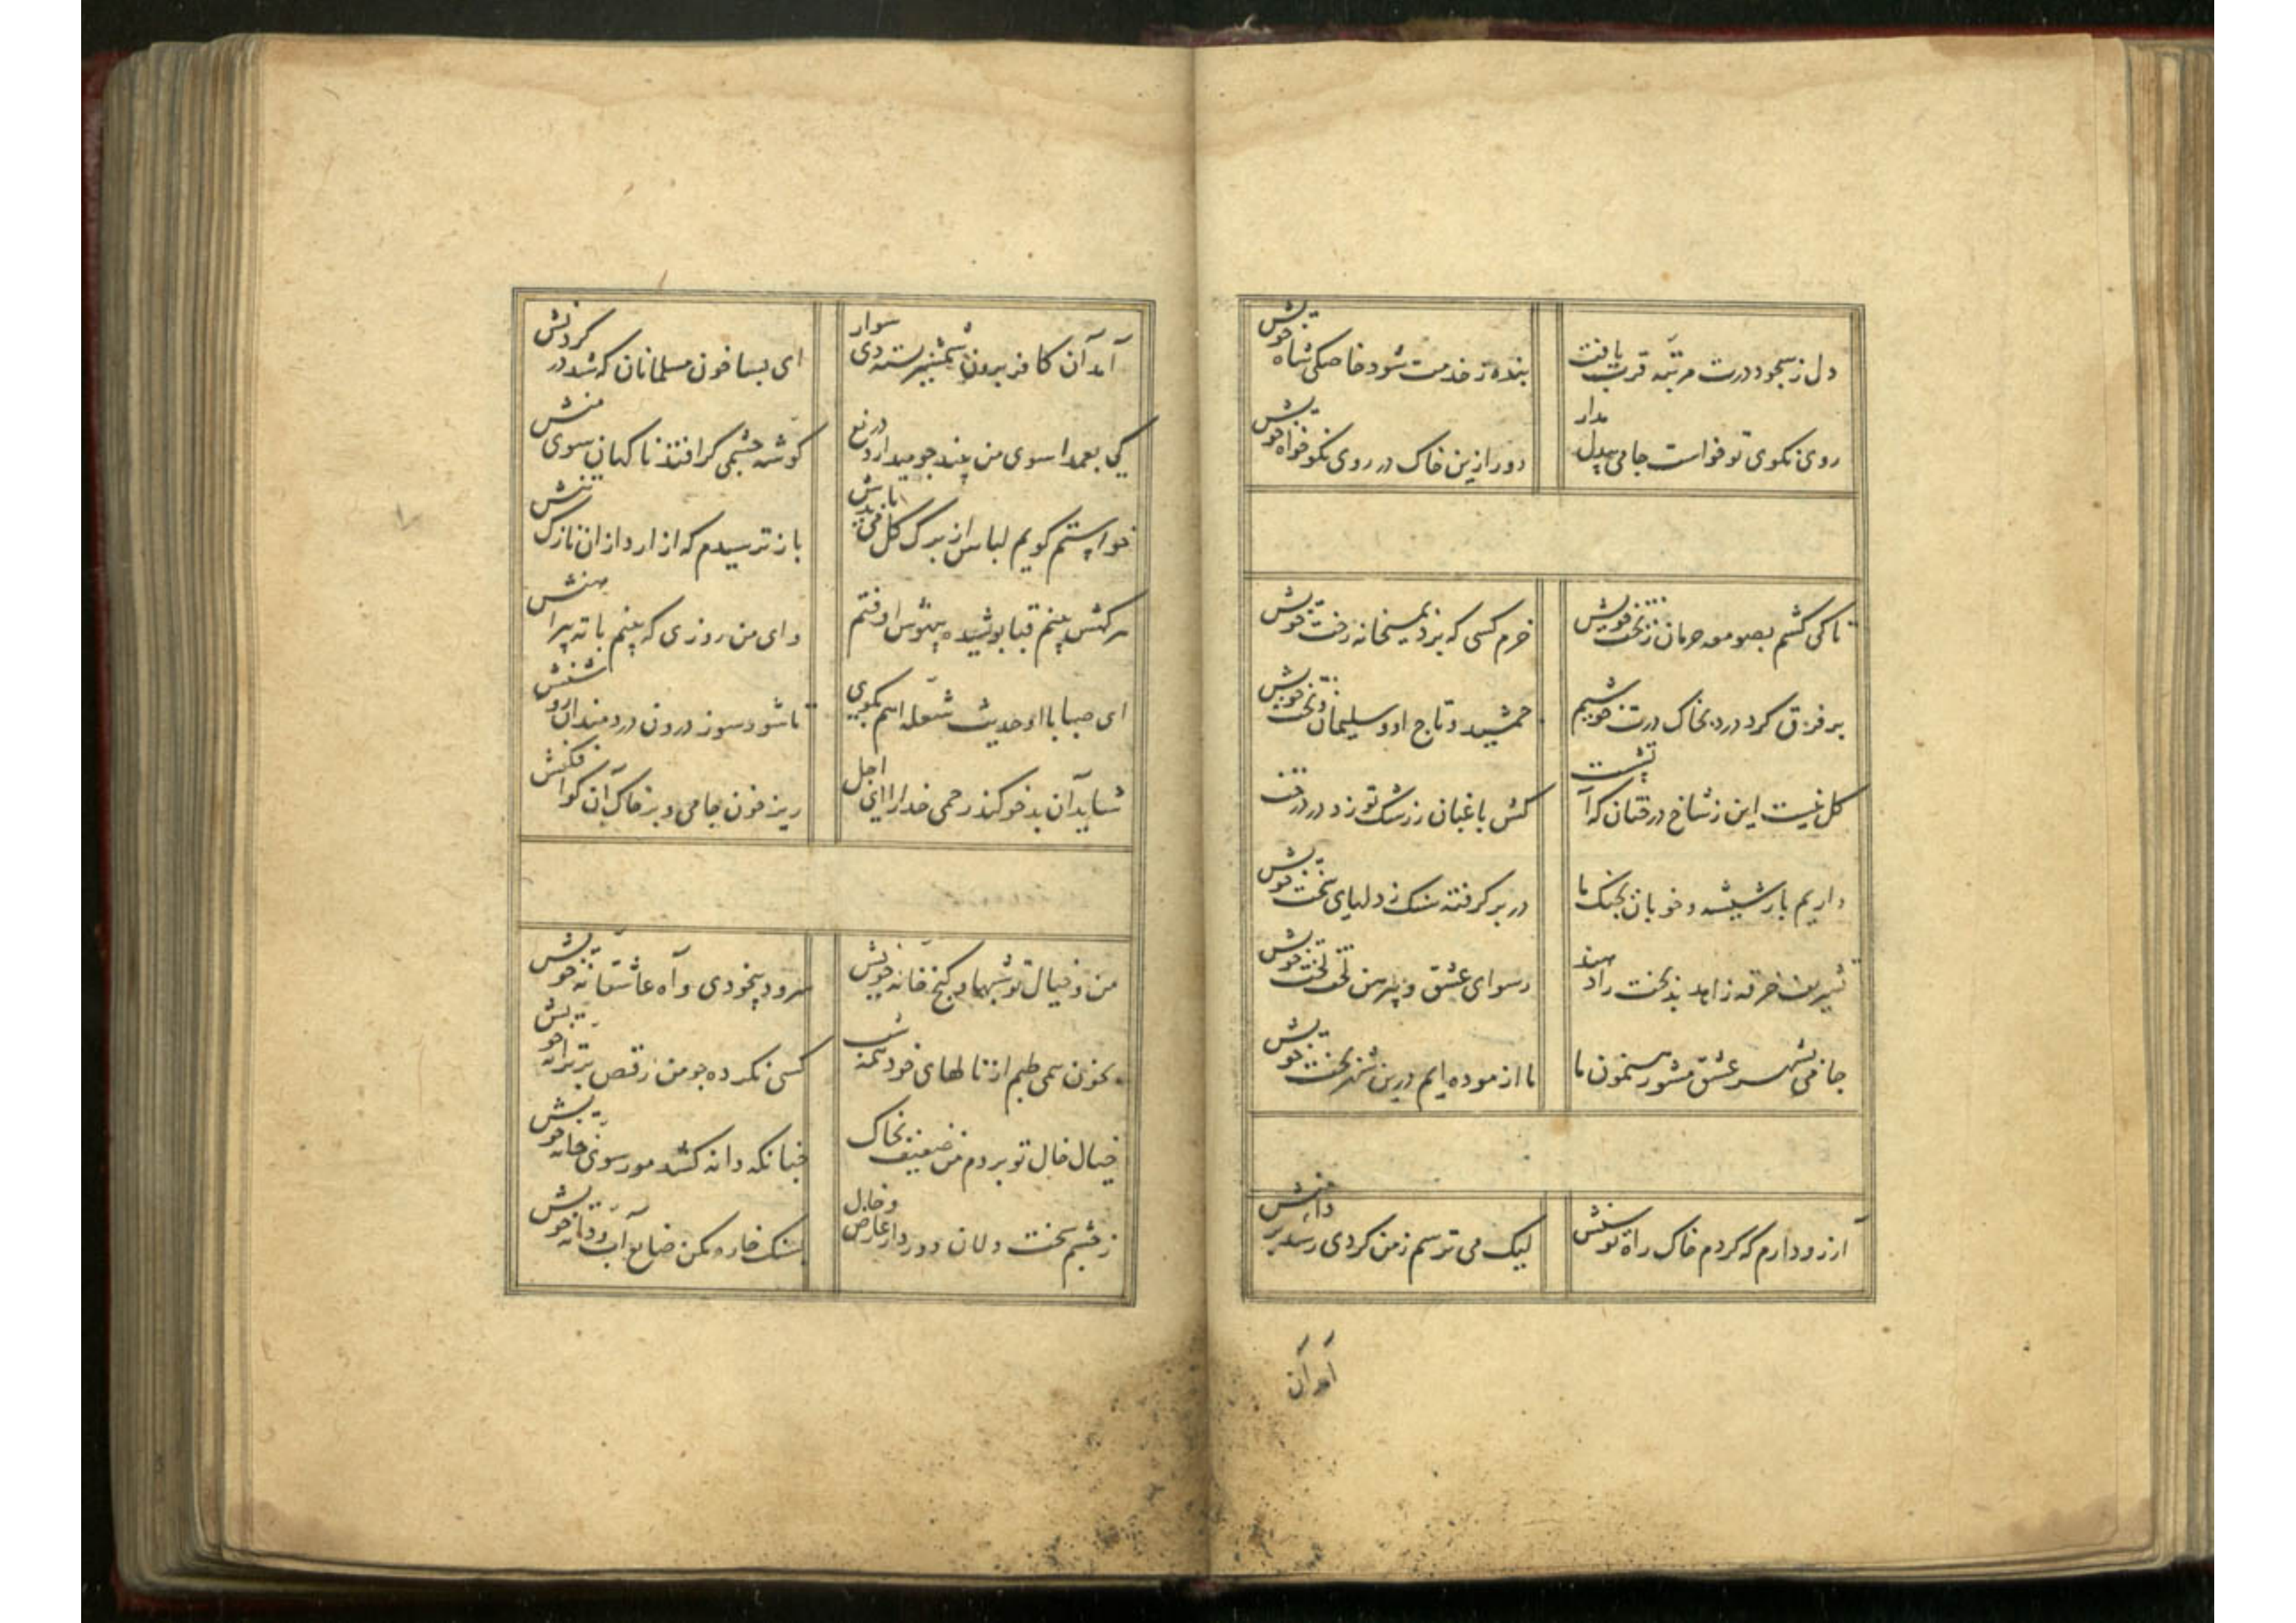 دل ز سجود درت مرتبه قرب یافت
بنده ز خدمت شود خاصکی شاه خویش
روی نکوی تو خواست جامی بیدل مدار
دور ازین خاک در روی نکو خواه خویش
تا کی کشم بصومعه حرمان ز بخت خویش
خرم کسی که برد بمیخانه رخت خویش
بر فرق کرد درد بخاک درت خوشیم
جمشید و تاج او و سلیمان و تخت خویش
گل نیست این ز شاخ درختان که آتشست
کش باغبان ز رشک تو زد در درخت
داریم بار شیشه و خوبان بجنگ ما
در بر گرفته سنگ ز دلهای سخت خویش
تشریف خرقه زاهد بدبخت را دهند
رسوای عشق و پیرهن لخت لخت خویش
جامی بشهر عشق مشو رهنمون ما
ما ازموده ایم درین شهر بخت خویش
آرزو دارم که کردم خاک راه توسنش
لیک می ترسم ز من کردی رسد بر دامنش
آمد آن
آمد آن کافر برون شمشیر بسته دی سوار
ای بسا خون مسلمانان که شد در کردنش
کی بعمدا سوی من بیند چو میدارد دریغ
گوشه چشمی گر افتد ناکهان سوی منش
خواستم گویم لباس از برگ گل می بایدش
باز ترسیدم که ازارد ازان نازک تنش
هر کهش بینم قبا پوشیده بیهوش اوفتم
وای من روزی که بینم با ته پیراهنش
ای صبا با او حدیث شعله آهم بگوی
تا شود سوز درون دردمندان روشنش
شاید آن بدخو کند رحمی خدا را ای اجل
ریز خون جامی و بر خاک آن کو افکنش
من و خیال تو شبها و کنج خانه خویش
سرود بیخودی و آه عاشقانه خویش
بخون همی طپم از نالهای خود همه شب
کسی نکرده چو من رقص بر ترانه خویش
خیال خال تو بردم من ضعیف بخاک
چنانکه دانه کشد مور سوی خانه خویش
ز چشم سخت دلان دور دار عارض و خال
بسنگ خاره مکن ضایع آب و دانه خویش